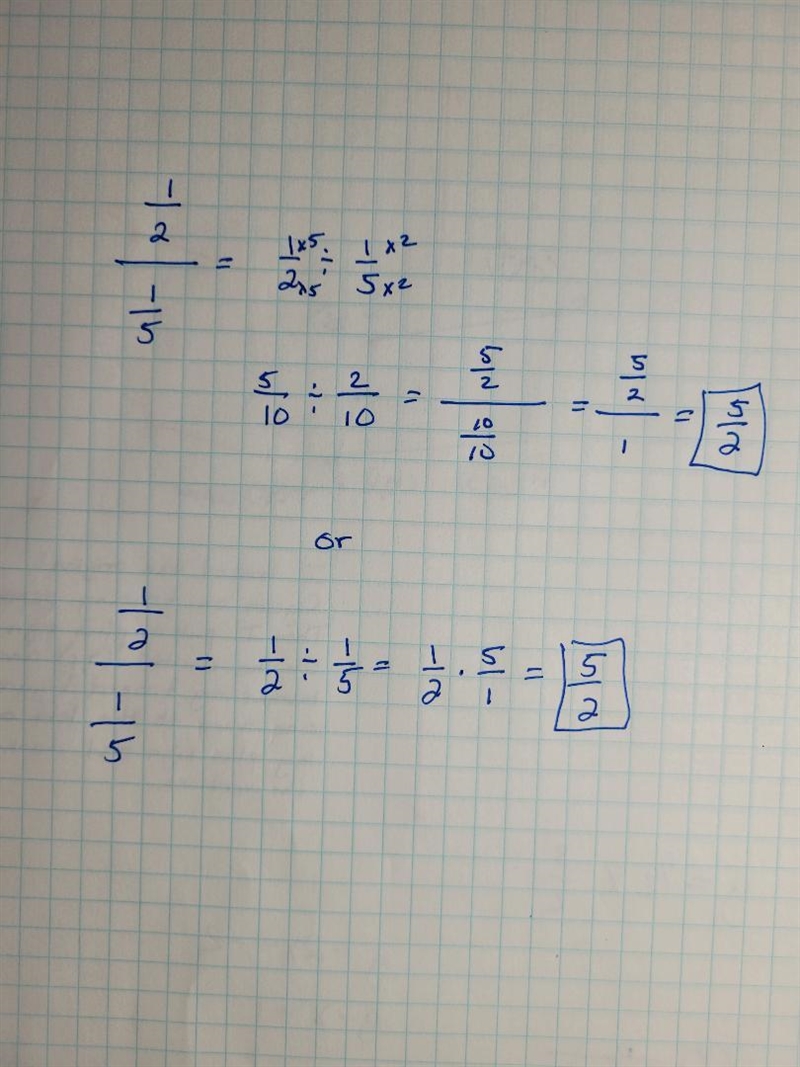 (1/2)/(1/5) = 1×5/2×5 ÷ 1×2/5×2
5/10 ÷ 2/10 = (5/2)/(10/10) = (5/2)/1 = 5/2
or
(1/2)/(1/5) = 1/2 ÷ 1/5 = 1/2 · 5/1 = 5/2